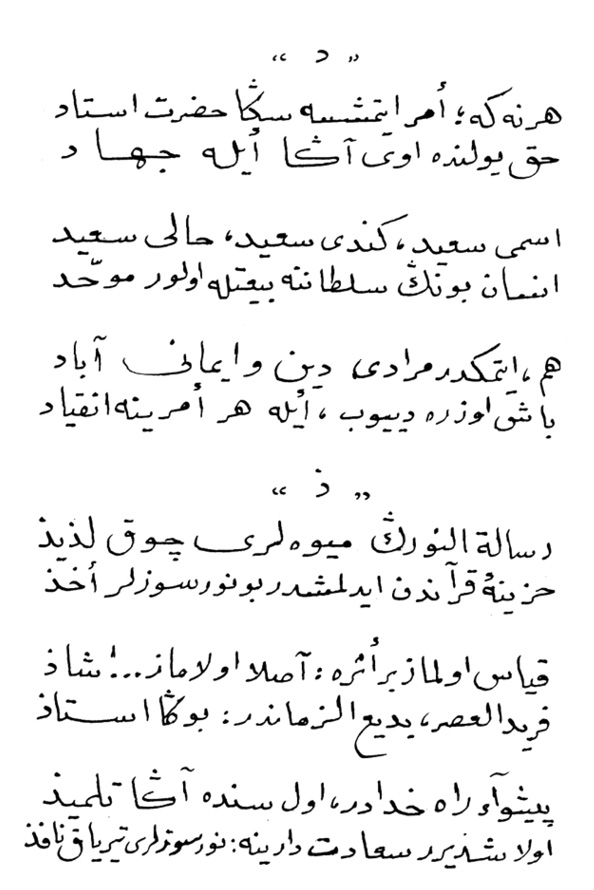 « د »
هر نه كه؛ أمر ايتمشسه سڭا حضرت استاد
حق يولنده اوى آڭا أيله جهاد
اسمى سعيد، كندى سعيد، حالى سعيد
انسان بونڭ سلطاننه بيعتله اولور موحّد
هم، ايتمكدر مرادى دين و ايمانى آباد
باش اوزره دييوب، أيله هر أمرينه انقياد
« ذ »
رسالة النورڭ ميوه لرى چوق لذيذ
خزينۀ قرآندن ايدلمشدر بو نور سوزلر أخذ
قياس اولماز بر أثره: آصلا اولاماز...! شاذ
فريد العصر، بديع الزماندر: بوڭا استاذ
پيشوآء راه خدادر، اول سنده آڭا تلميذ
اولاشديرر سعادت دارينه: نور سوزلرى ترياق نافذ